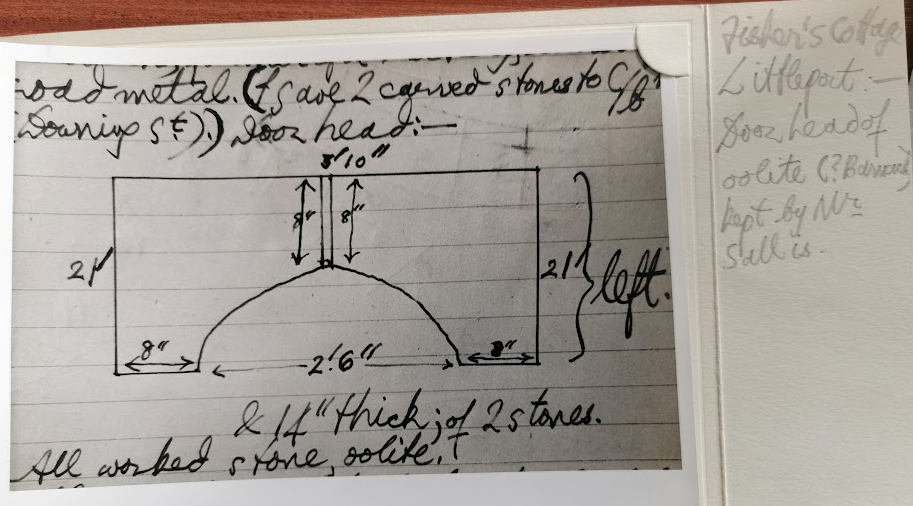 road metal. (I save 2 carved stones to C/b
(Downing St.).) Door head:—
3' 10"
8" 8"
21" 21" left.
8" 2' 6" 8"
& 14" thick; of 2 stones.
All worked stone, oolite.
Fisher's Cottage
Littleport:—
Door head of
oolite (? Barnack)
kept by Mr
Sallis.